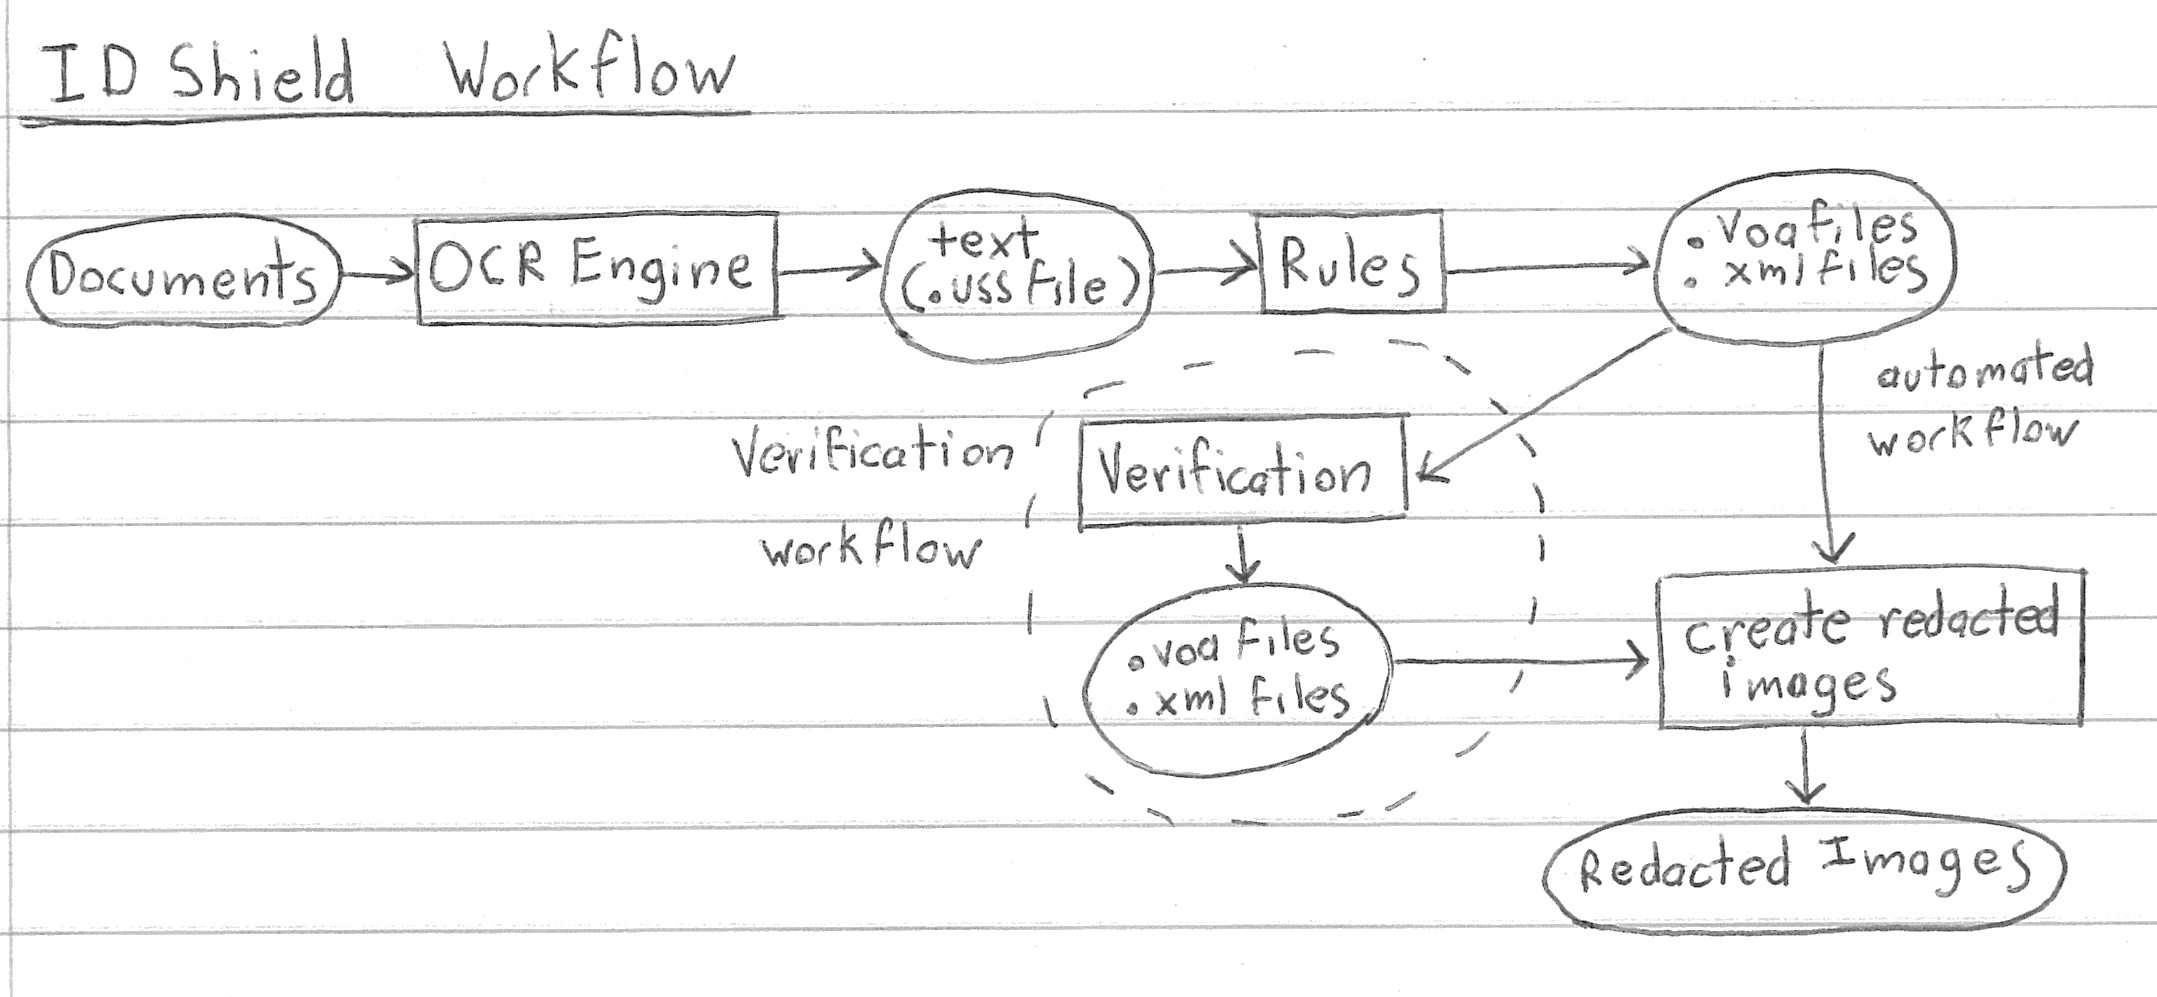 ID Shield Workflow
Documents
OCR Engine
text
(.uss file)
Rules
.voa files
.xml files
automated
workflow
Verification
workflow
Verification
.voa files
.xml files
create redacted
images
Redacted Images